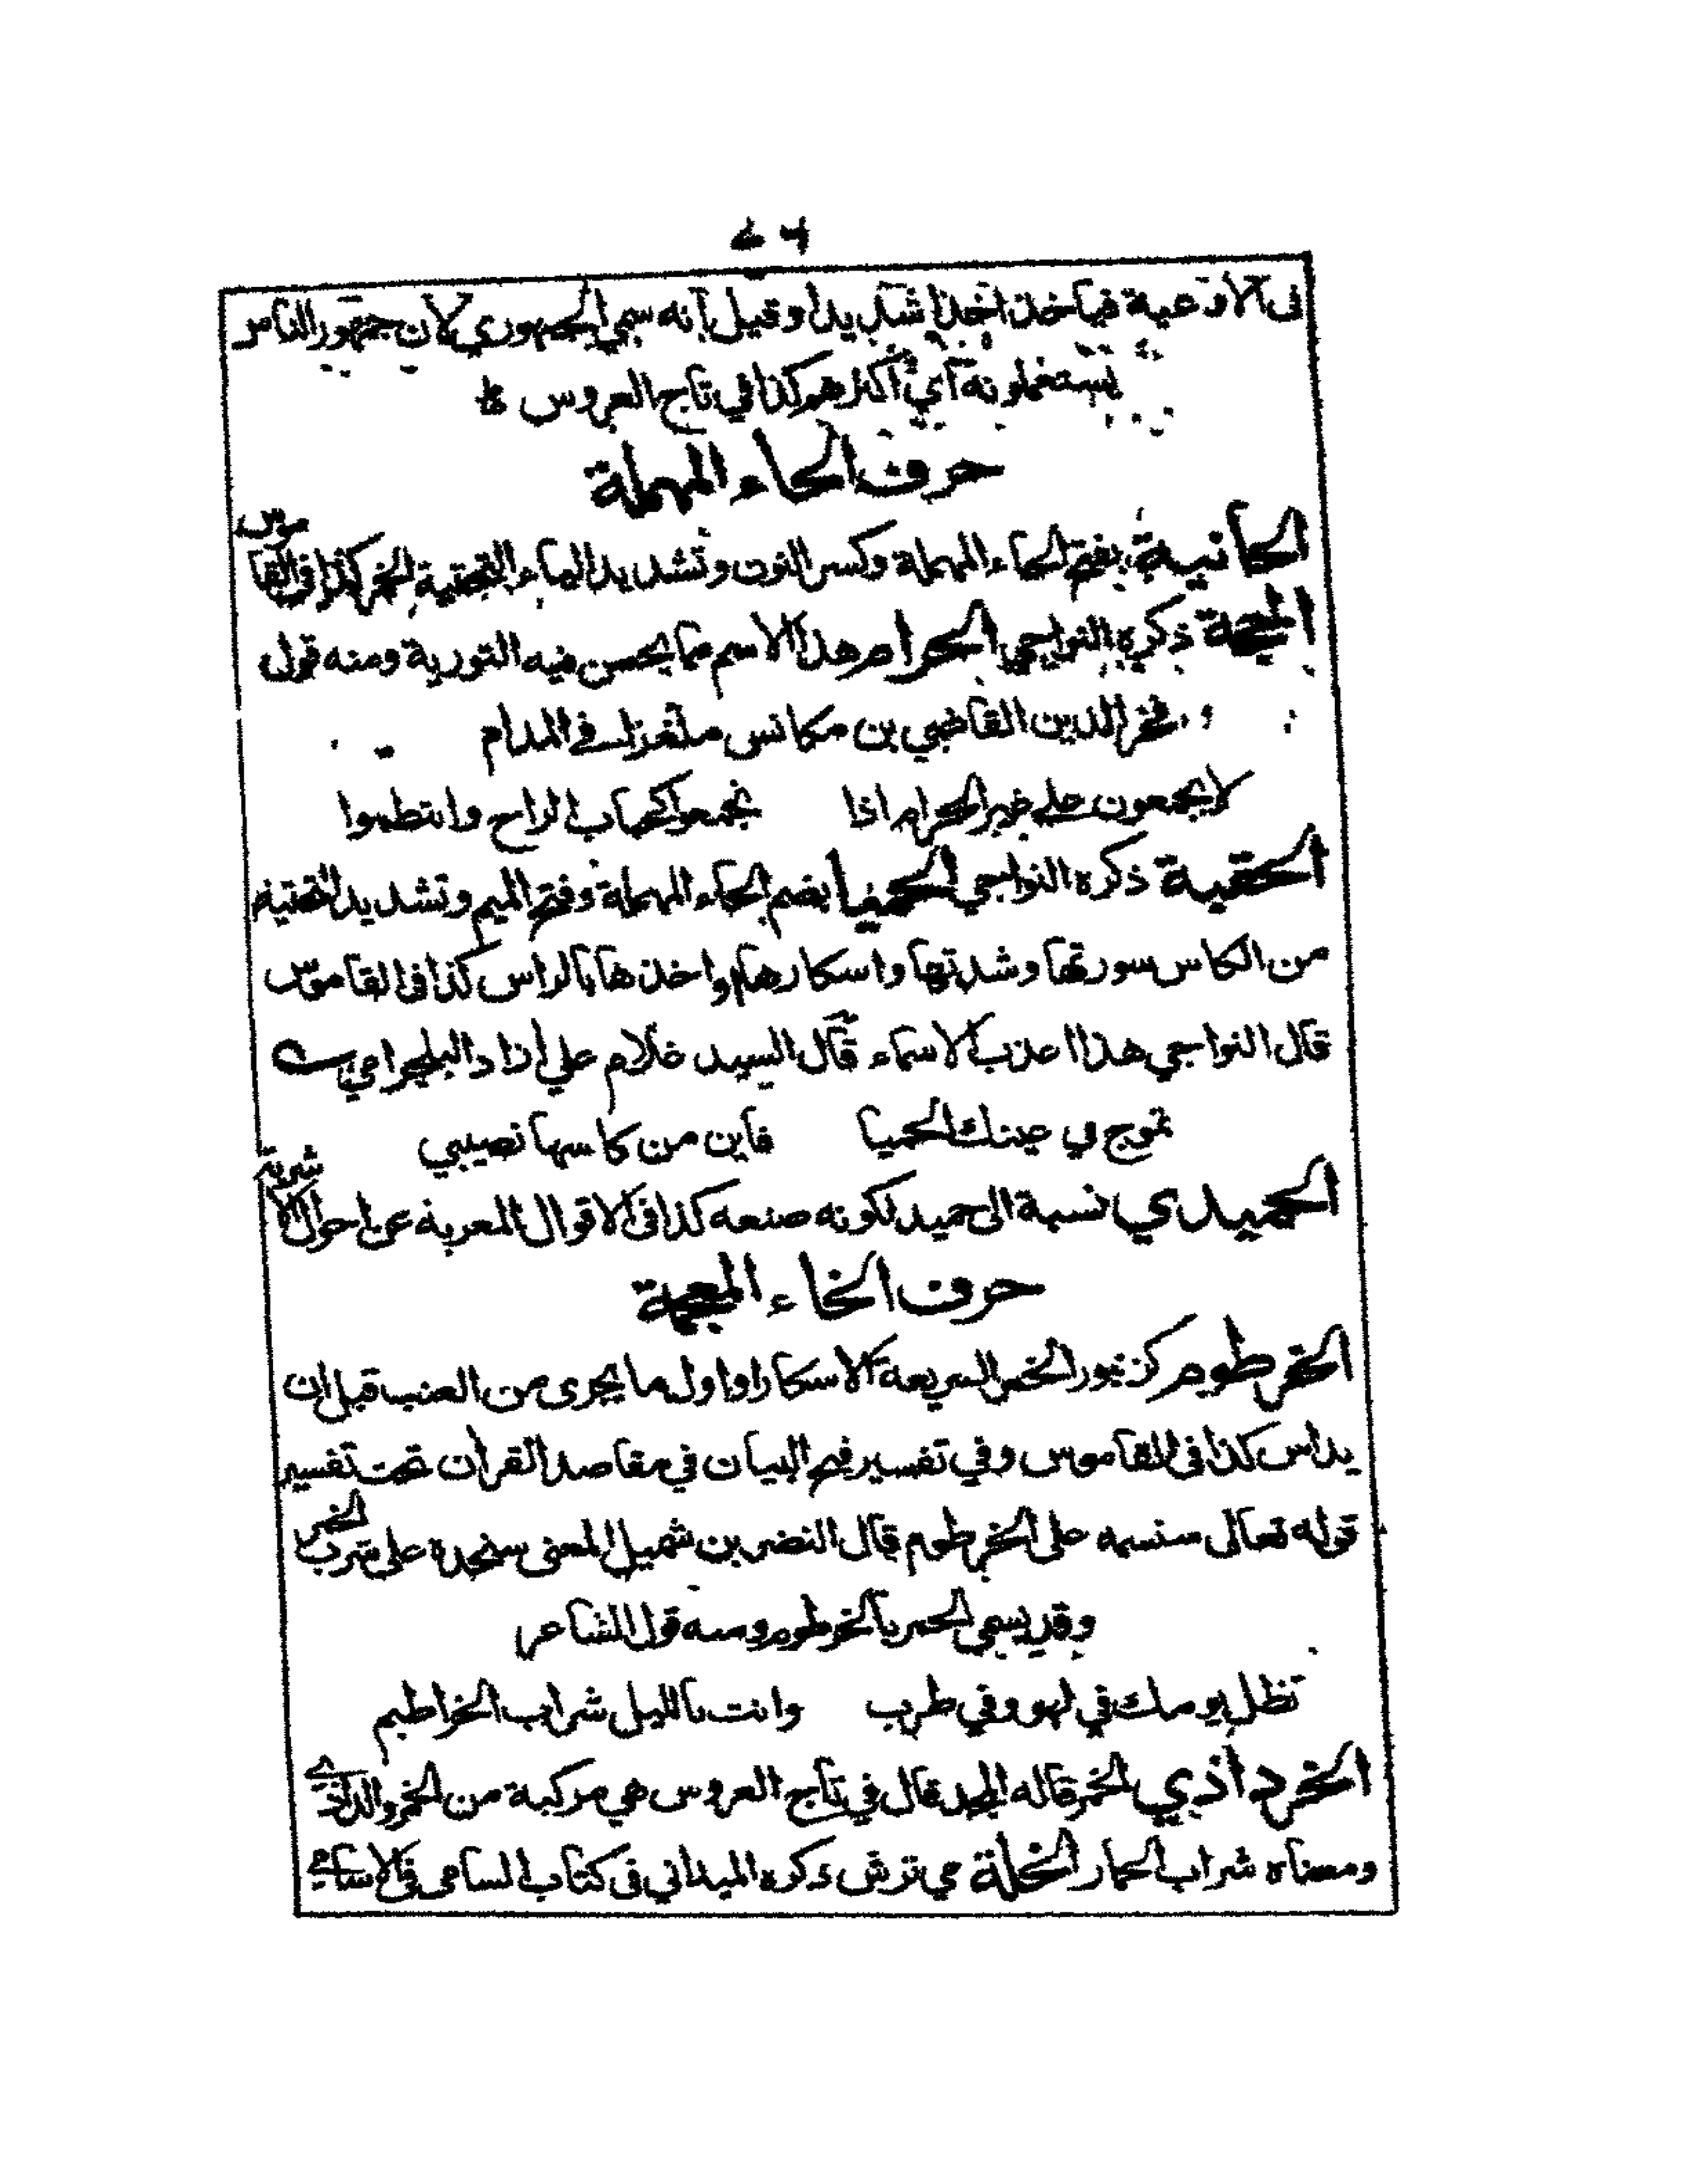 في الاوعية فياخذ اخذا شديدا وقيل انه سمي الجمهوري لان جمهور الناس
يستعملونه اي اكثرهم كذا في تاج العروس
حرف الحاء المهملة
الحانية بفتح الحاء المهملة وكسر النون وتشديد الياء التحتية الخمر كذا في القاموس
ذكره النواجي الحرام هذا الاسم مما يحسن فيه التورية ومنه قول
فخر الدين القاضي بن مكانس ملغزا في المدام
لا يجمعون على غير الحرام اذا تجمعوا كحباب الراح وانتظموا
ذكره النواجي الحميا بضم الحاء المهملة وفتح الميم وتشديد التحتية
من الكاس سورتها وشدتها واسكارها واخذها بالراس كذا في القاموس
قال النواجي هذا اعذب الاسماء قال السيد غلام علي ازاد البلجرامي
تموج في عينك الحميا فاين من كاسها نصيبي
الحميدي نسبة الى حميد لكونه صنعه كذا في الاقوال المعربة عن احوال الاشربة
حرف الخاء المعجمة
الخرطوم كزنبور الخمر السريعة الاسكار او اول ما يجرى من العنب قبل ان
يداس كذا في القاموس وفي تفسير فتح البيان في مقاصد القران تحت تفسير
قوله تعالى سنسمه على الخرطوم قال النضر بن شميل المعنى سنحده على شرب الخمر
وقد يسمى الخمر بالخرطوم ومنه قول الشاعر
تظل يومك في لهو وفي طرب وانت بالليل شراب الخراطيم
الخردا ذي الخمر قاله المجد قال في تاج العروس هي مركبة من الخمر والداذي
ومعناه شراب الحمار الخلة مي ترش ذكره الميداني في كتاب السامى في الاسامي